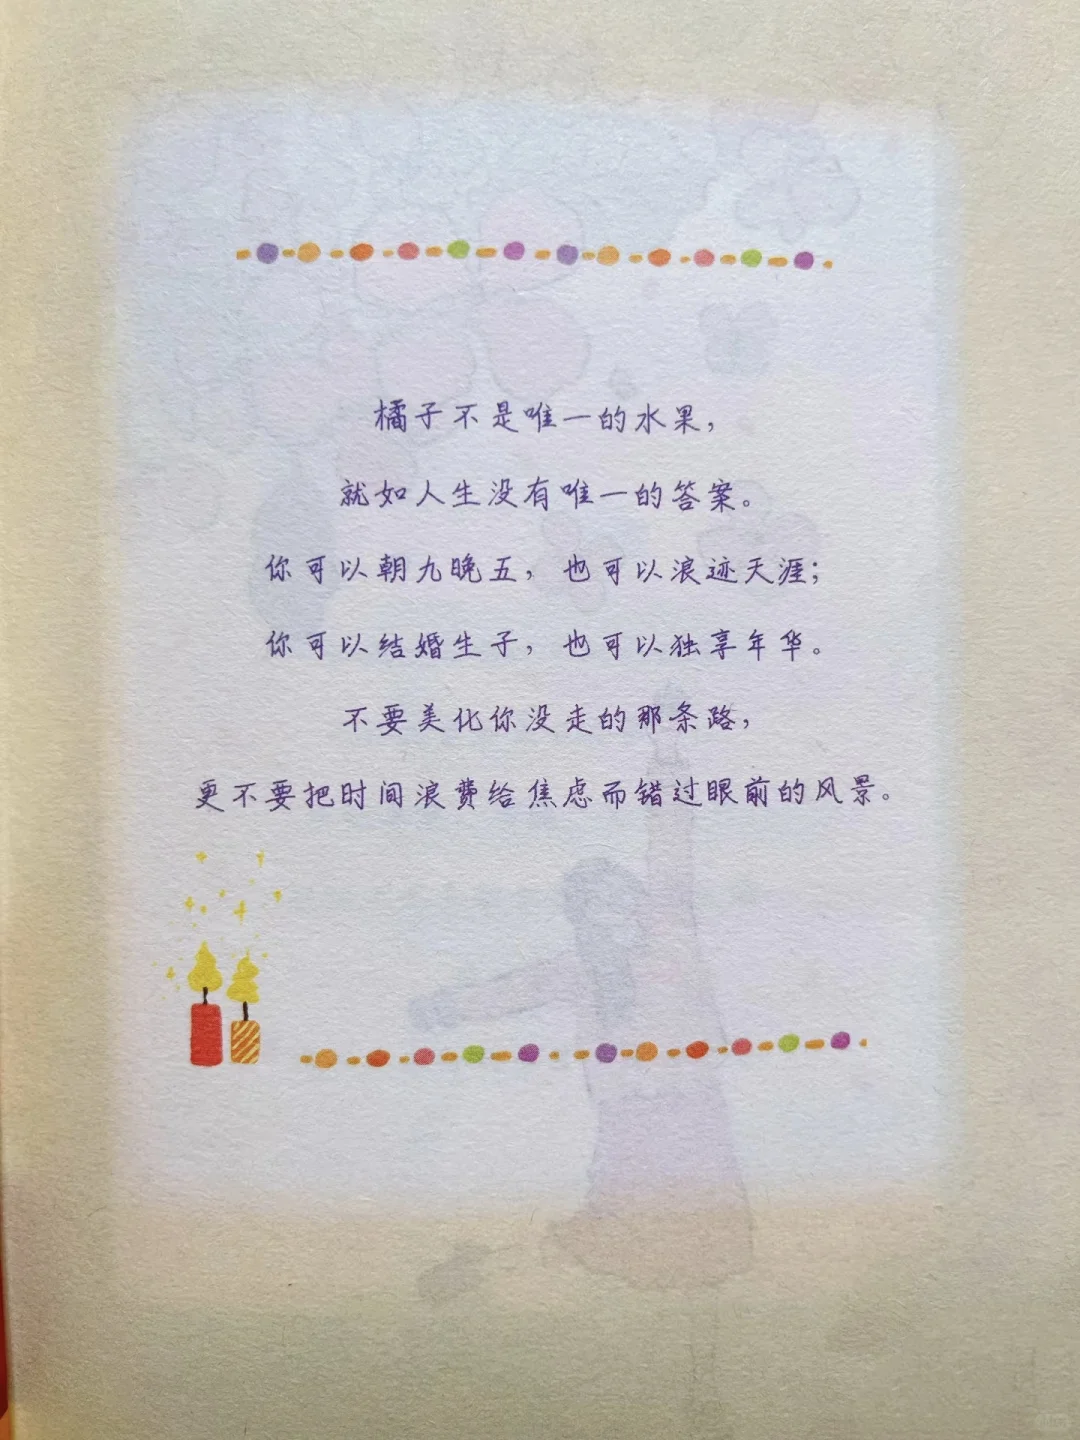 橘子不是唯一的水果，
就如人生没有唯一的答案。
你可以朝九晚五，也可以浪迹天涯；
你可以结婚生子，也可以独享年华。
不要美化你没走的那条路，
更不要把时间浪费给焦虑而错过眼前的风景。